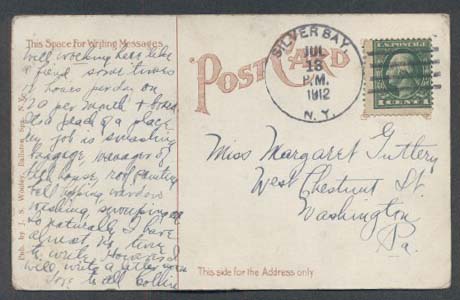 This Space for Writing Messages
Will working here like
a fiend some times
hours per day on
20 per month & board
of a place
my job is smashing
baggage, manager of
house, roof painting
windows
washing,
so naturally I have
almost no time
to write. However
will write a letter soon
Love to all Collin
Pub. by J. S. Wooley, Ballston Spa, N.Y.
POST CARD
SILVER BAY
JUL
13
P.M.
1912
N. Y.
U.S. POSTAGE
1 CENT 1
Miss Margaret Guttery
West Chestnut St.
Washington
Pa.
This side for the Address only